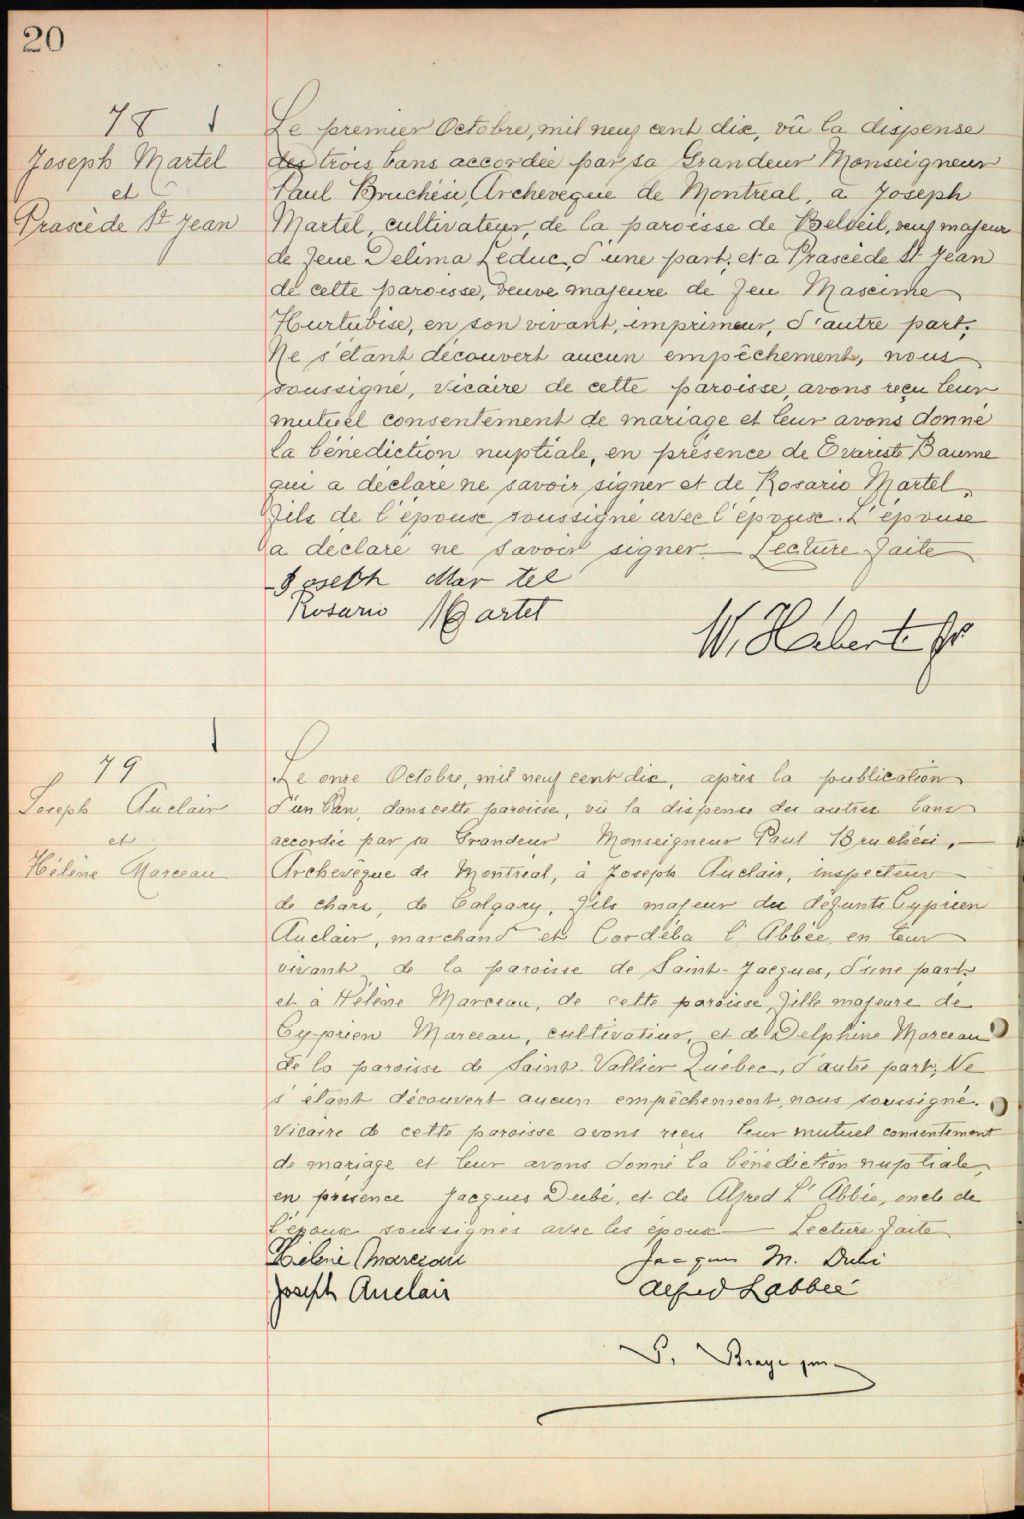 20
78
Joseph Martel
et
Prascède St Jean
Le premier Octobre, mil neuf cent dix, vû la dispense
des trois bans accordée par sa Grandeur Monseigneur
Paul Bruchési, Archevêque de Montréal, à Joseph
Martel, cultivateur, de la paroisse de Beloeil, veuf majeur
de feue Delima Leduc, d'une part, et à Prascède St Jean
de cette paroisse, veuve majeure de feu Maxime
Hurtubise, en son vivant, imprimeur, d'autre part;
Ne s'étant découvert aucun empêchement, nous
soussigné, vicaire de cette paroisse, avons reçu leur
mutuel consentement de mariage et leur avons donné
la bénédiction nuptiale, en présence de Evariste Baume
qui a déclaré ne savoir signer et de Rosario Martel,
fils de l'époux soussigné avec l'époux. L'épouse
a déclaré ne savoir signer — Lecture faite
Joseph Martel
Rosario Martel
W. Hébert. ptr
79
Joseph Auclair
et
Hélène Marceau
Le onze Octobre, mil neuf cent dix, après la publication
d'un ban, dans cette paroisse, vû la dispense des autres bans
accordée par sa Grandeur Monseigneur Paul Bruchési, —
Archevêque de Montréal, à Joseph Auclair, inspecteur
de chars, de Calgary, fils majeur des défunts Cyprien
Auclair, marchand et Cordéla l'Abbée, en leur
vivant, de la paroisse de Saint-Jacques, d'une part;
et à Hélène Marceau, de cette paroisse, fille majeure de
Cyprien Marceau, cultivateur, et de Delphine Marceau
de la paroisse de Saint-Vallier Québec, d'autre part; Ne
s'étant découvert aucun empêchement, nous soussigné,
vicaire de cette paroisse avons reçu leur mutuel consentement
de mariage et leur avons donné la bénédiction nuptiale,
en présence Jacques Dubé, et de Alfred L'Abbée, oncle de
l'époux soussignés avec les époux — Lecture faite
Hélène Marceau
Jacques M. Dubé
Joseph Auclair
Alfred Labbée